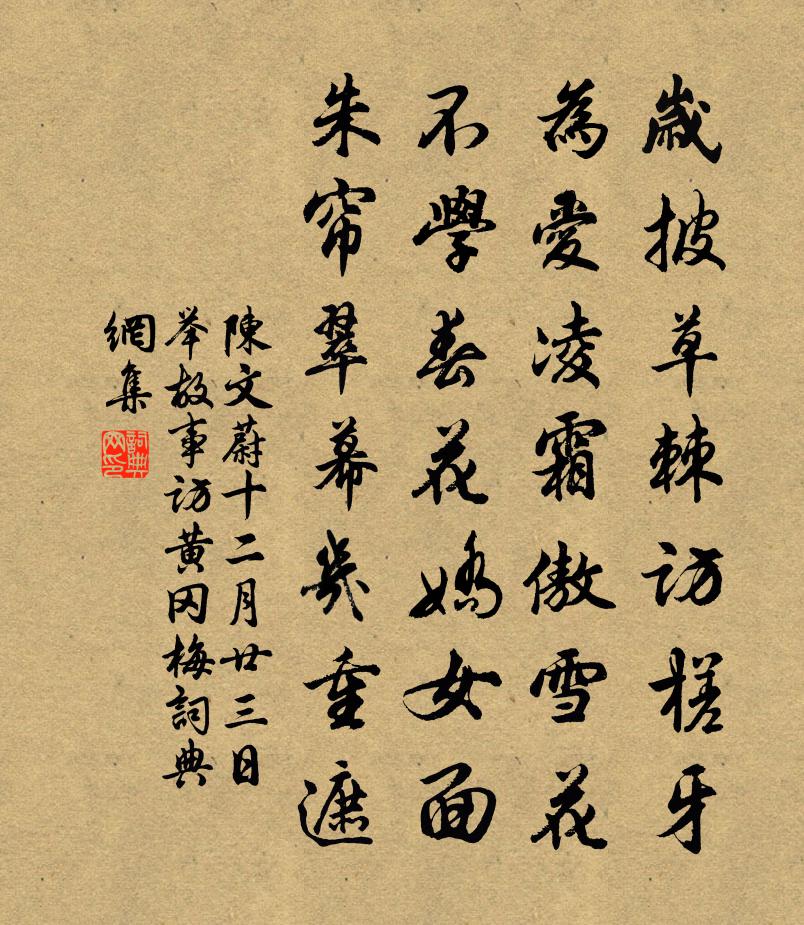 歲披草棘訪槎牙
為愛凌霜傲雪花
不學春花嬌女面
朱帘翠幕幾重遮
陳文蔚十二月廿三日
举故事访黄冈梅詞典
網集
詞典
网印